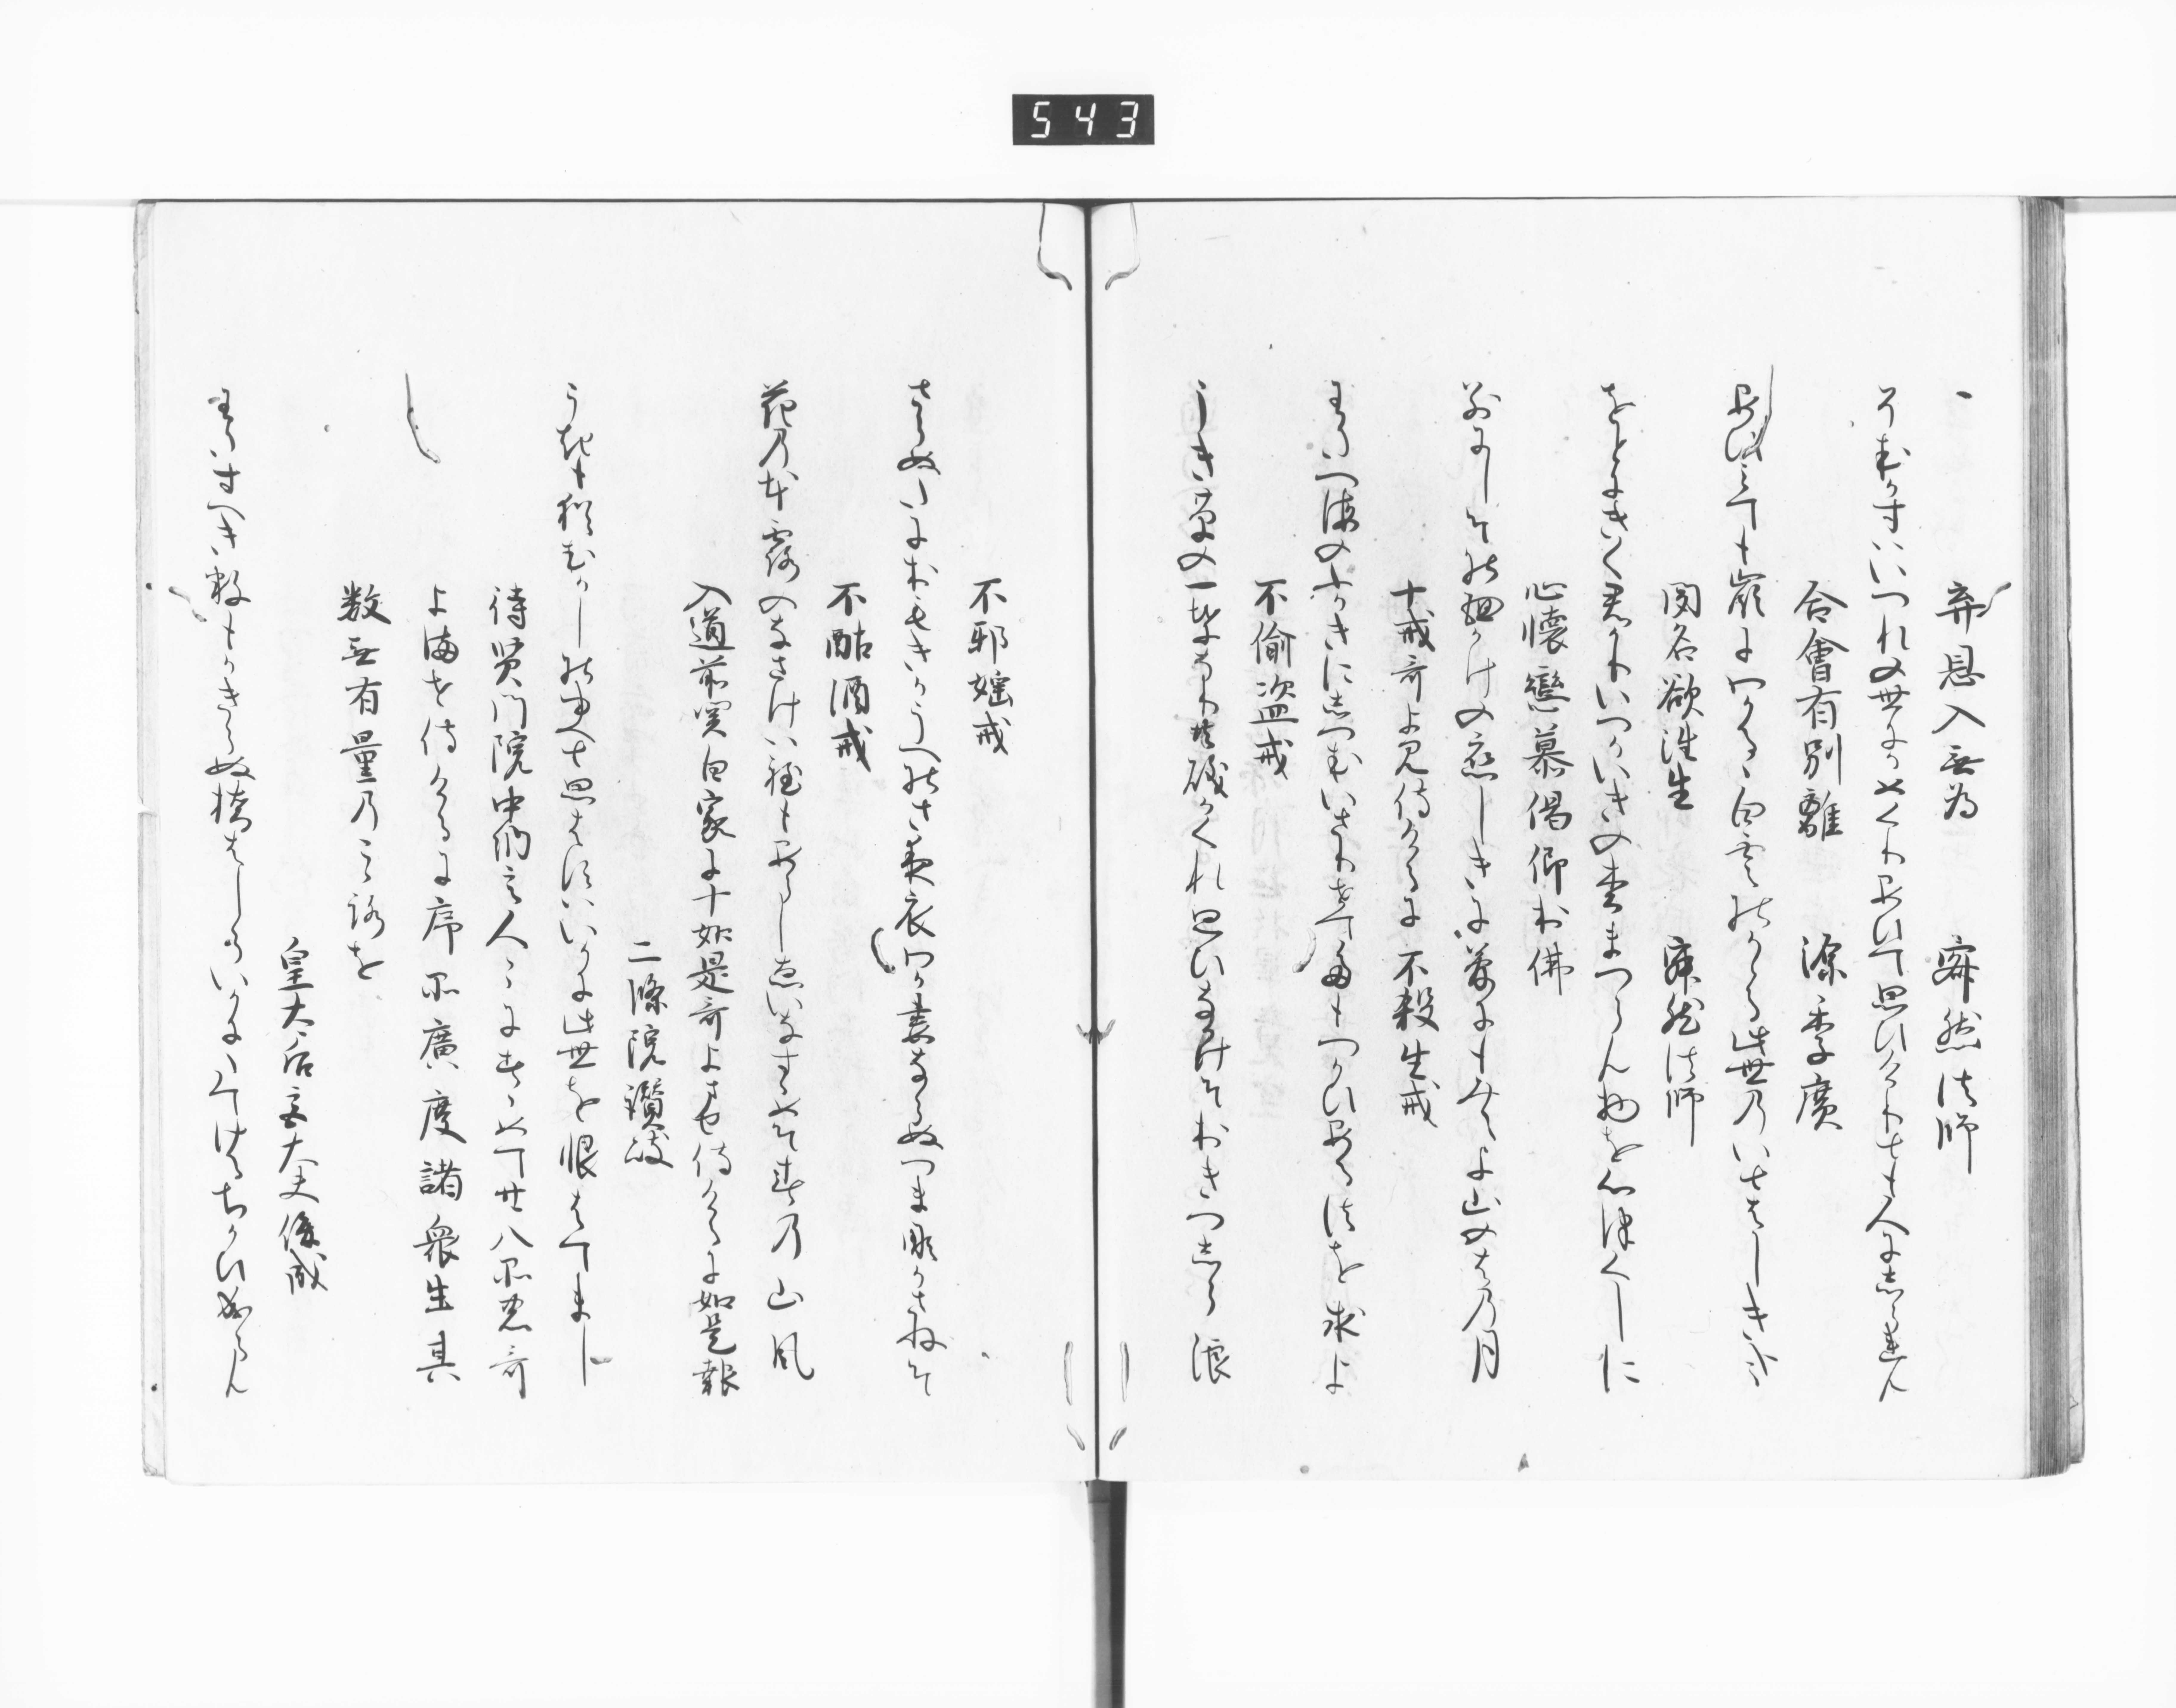 543
棄恩入無為　寂然法師
そむかすはいつれの世にかめくりあひて思ひけりとも人にしられん
合會有別離　源季廣
あひみても嶺にわかるゝ白雲のかゝる此世のいとはしきかな
聞名欲往生　寂然法師
をとにきく君かりいつかいきの松まつらん物を心つくしに
心懐戀慕渇仰於佛
別にしその面かけの恋しきに夢にもみえよ山のはの月
十戒哥よみ侍けるに　不殺生戒
わたつ海のふかきにしつむいさりせてたもつかひある法を求よ
不偸盗戒
うき草の一葉なりとも礒かくれ思ひなかけそおきつしら浪
不邪婬戒
さらぬたにおもきかうへのさ夜衣わか妻ならぬつまな重ねそ
不酤酒戒
花の本露のなさけは程もあらしゑひなすゝめそ春の山風
入道前関白家に十如是哥よませ侍けるに如是報
二條院讃岐
うきも猶むかしのゆへと思はすはいかに此世を恨はてまし
待賢門院中納言人々にすゝめて廿八品哥
よませ侍けるに序品廣度諸衆生其
数無有量の心を
皇太后宮大夫俊成
わたすへき数もかきらぬ橋はしらいかにたてけるちかひなるらん